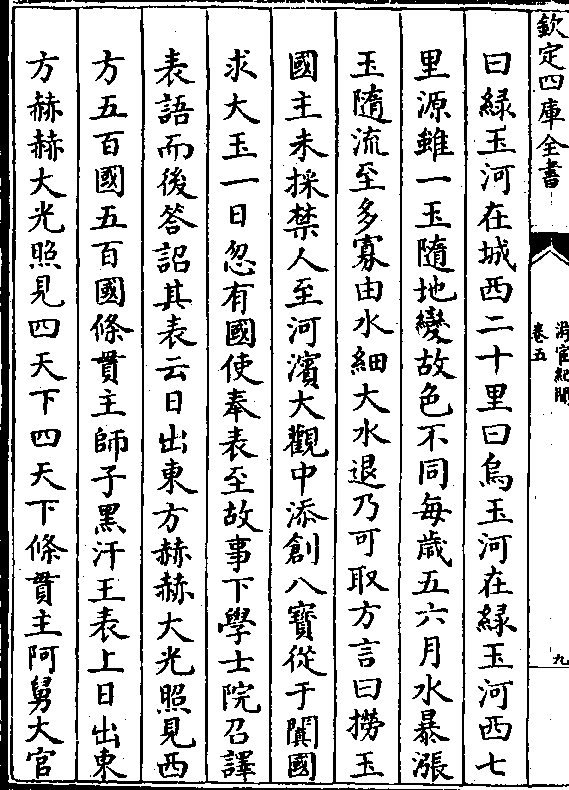 欽定四庫全書
游宦紀聞
卷五
九
曰緑玉河在城西二十里曰烏玉河在緑玉河西七
里源雖一玉隨地變故色不同每歳五六月水暴漲
玉隨流至多寡由水細大水退乃可取方言曰撈玉
國主未採禁人至河濱大觀中添創八寳從于闐國
求大玉一日忽有國使奉表至故事下學士院召譯
表語而後答詔其表云日出東方赫赫大光照見西
方五百國五百國條貫主師子黑汗王表上日出東
方赫赫大光照見四天下四天下條貫主阿舅大官